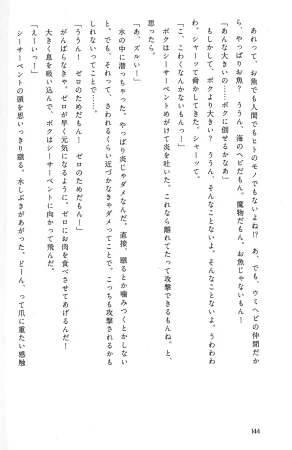 あれって、お魚でも人間でもヒトのモノでもないよね!? あ、でも、ウミヘビの仲間だか
ら、やっぱりお魚? ううん、海のヘビだもん。魔物だもん、お魚じゃないもん!
「あんな大きいの……ボクに倒せるかなあ」
もしかして、ボクより大きい? ううん、そんなことないよ。そんなことない。うわわわ
わっ、シャーッて脅かしてきた。シャーッて。
「こ、こわくなんかないもんっ!」
ボクはシーサーペントめがけて炎を吐いた。これなら離れてたって攻撃できるもんね。と、
思ったら。
「あ、ズルい!」
水の中に潜っちゃった。やっぱり炎じゃダメなんだ。直接、蹴るとか噛みつくとかしない
と。でも、それって、さわれるくらい近づかなきゃダメってことで。こっちも攻撃されるかも
しれないってことで……。
「ううん! ゼロのためだもん! ゼロのためだもん!」
がんばらなきゃ。ゼロが早く元気になるように、ゼロにお肉を食べさせてあげるんだ!
大きく息を吸い込んで、ボクはシーサーペントに向かって飛んだ。
「えーいっ!」
シーサーペントの頭を思いっきり蹴る。水しぶきがあがった。どーん、って爪に重たい感触
144